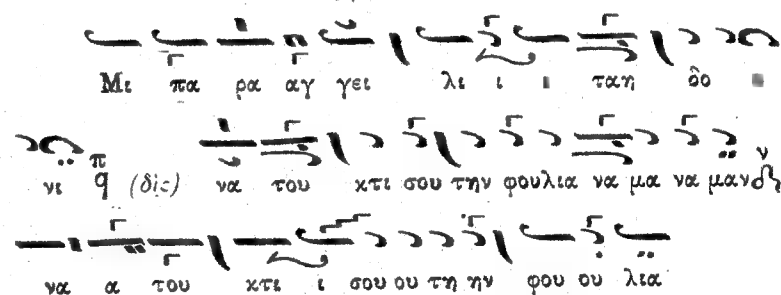 Μι πα ρα αγ γει λι ι ι ταη δο
νι π q (δὶς) να του κτι σου την φουλια να μα να μαν ν
να α του κτι ι σου ου τη ην φου ου λια